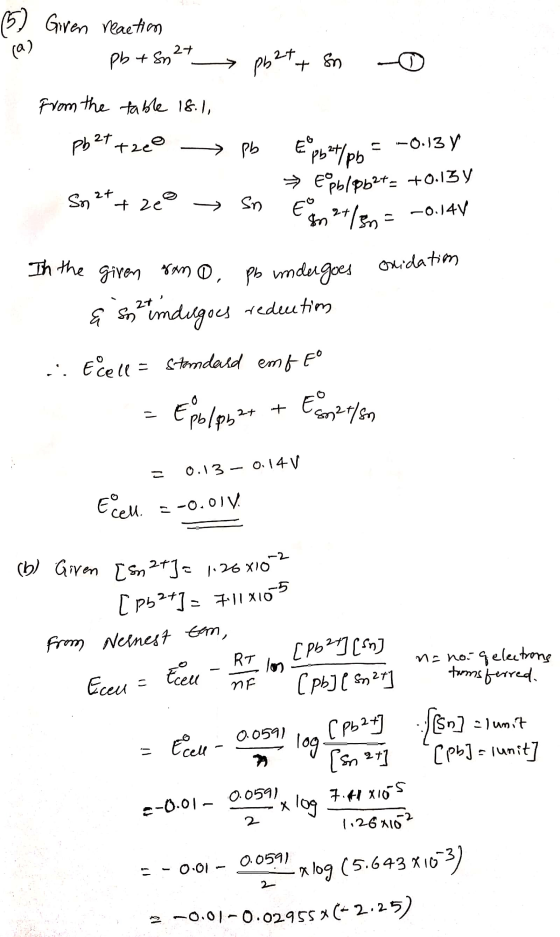 (5) Given reaction
(a)
Pb + Sn²⁺ → Pb²⁺ + Sn —①
From the table 18.1,
Pb²⁺ + 2e⊖ → Pb E°Pb²⁺/Pb = -0.13V
⇒ E°Pb/Pb²⁺ = +0.13V
Sn²⁺ + 2e⊖ → Sn E°Sn²⁺/Sn = -0.14V
In the given rxn ①, Pb undergoes oxidation
& 'Sn²⁺' undergoes reduction
∴ E°cell = Standard emf E°
= E°Pb/Pb²⁺ + E°Sn²⁺/Sn
= 0.13 - 0.14V
E°cell. = -0.01V.
(b) Given [Sn²⁺] = 1.26 x10⁻²
[Pb²⁺] = 7.11 x10⁻⁵
From Nernest
Ecell = E°cell - RT/nF ln [Pb²⁺][Sn]/[Pb][Sn²⁺] n = no. of electrons transferred.
= E°cell - 0.0591/n log [Pb²⁺]/[Sn²⁺] ∵ [[Sn] = 1 unit [Pb] = 1 unit]
= -0.01 - 0.0591/2 x log 7.11 x10⁻⁵/1.26 x10⁻²
= -0.01 - 0.0591/2 x log (5.643 x 10⁻³)
= -0.01 - 0.02955 x (-2.25)